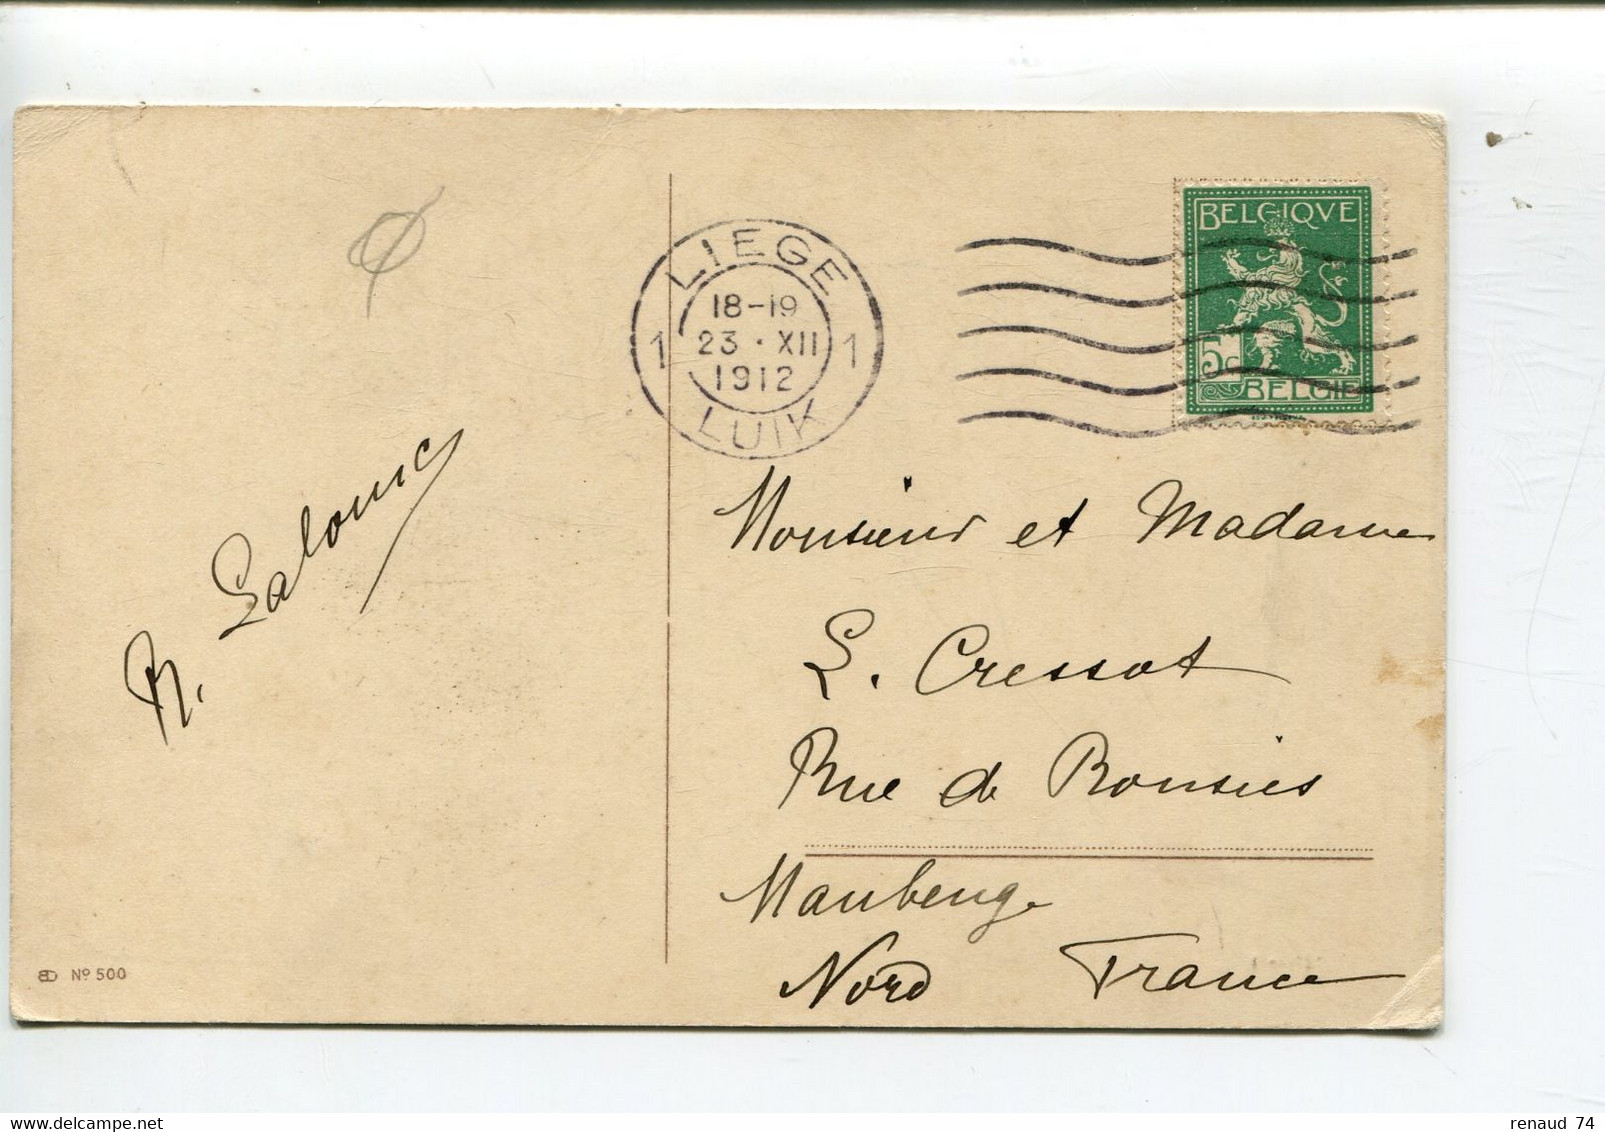 LIEGE
18-19
1 23 · XII 1
1912
LUIK
BELGIQVE
5c
BELGIE
Monsieur et Madame
L. Cressot
Rue de Rousies
Maubeuge
Nord France
Nº 500
renaud 74